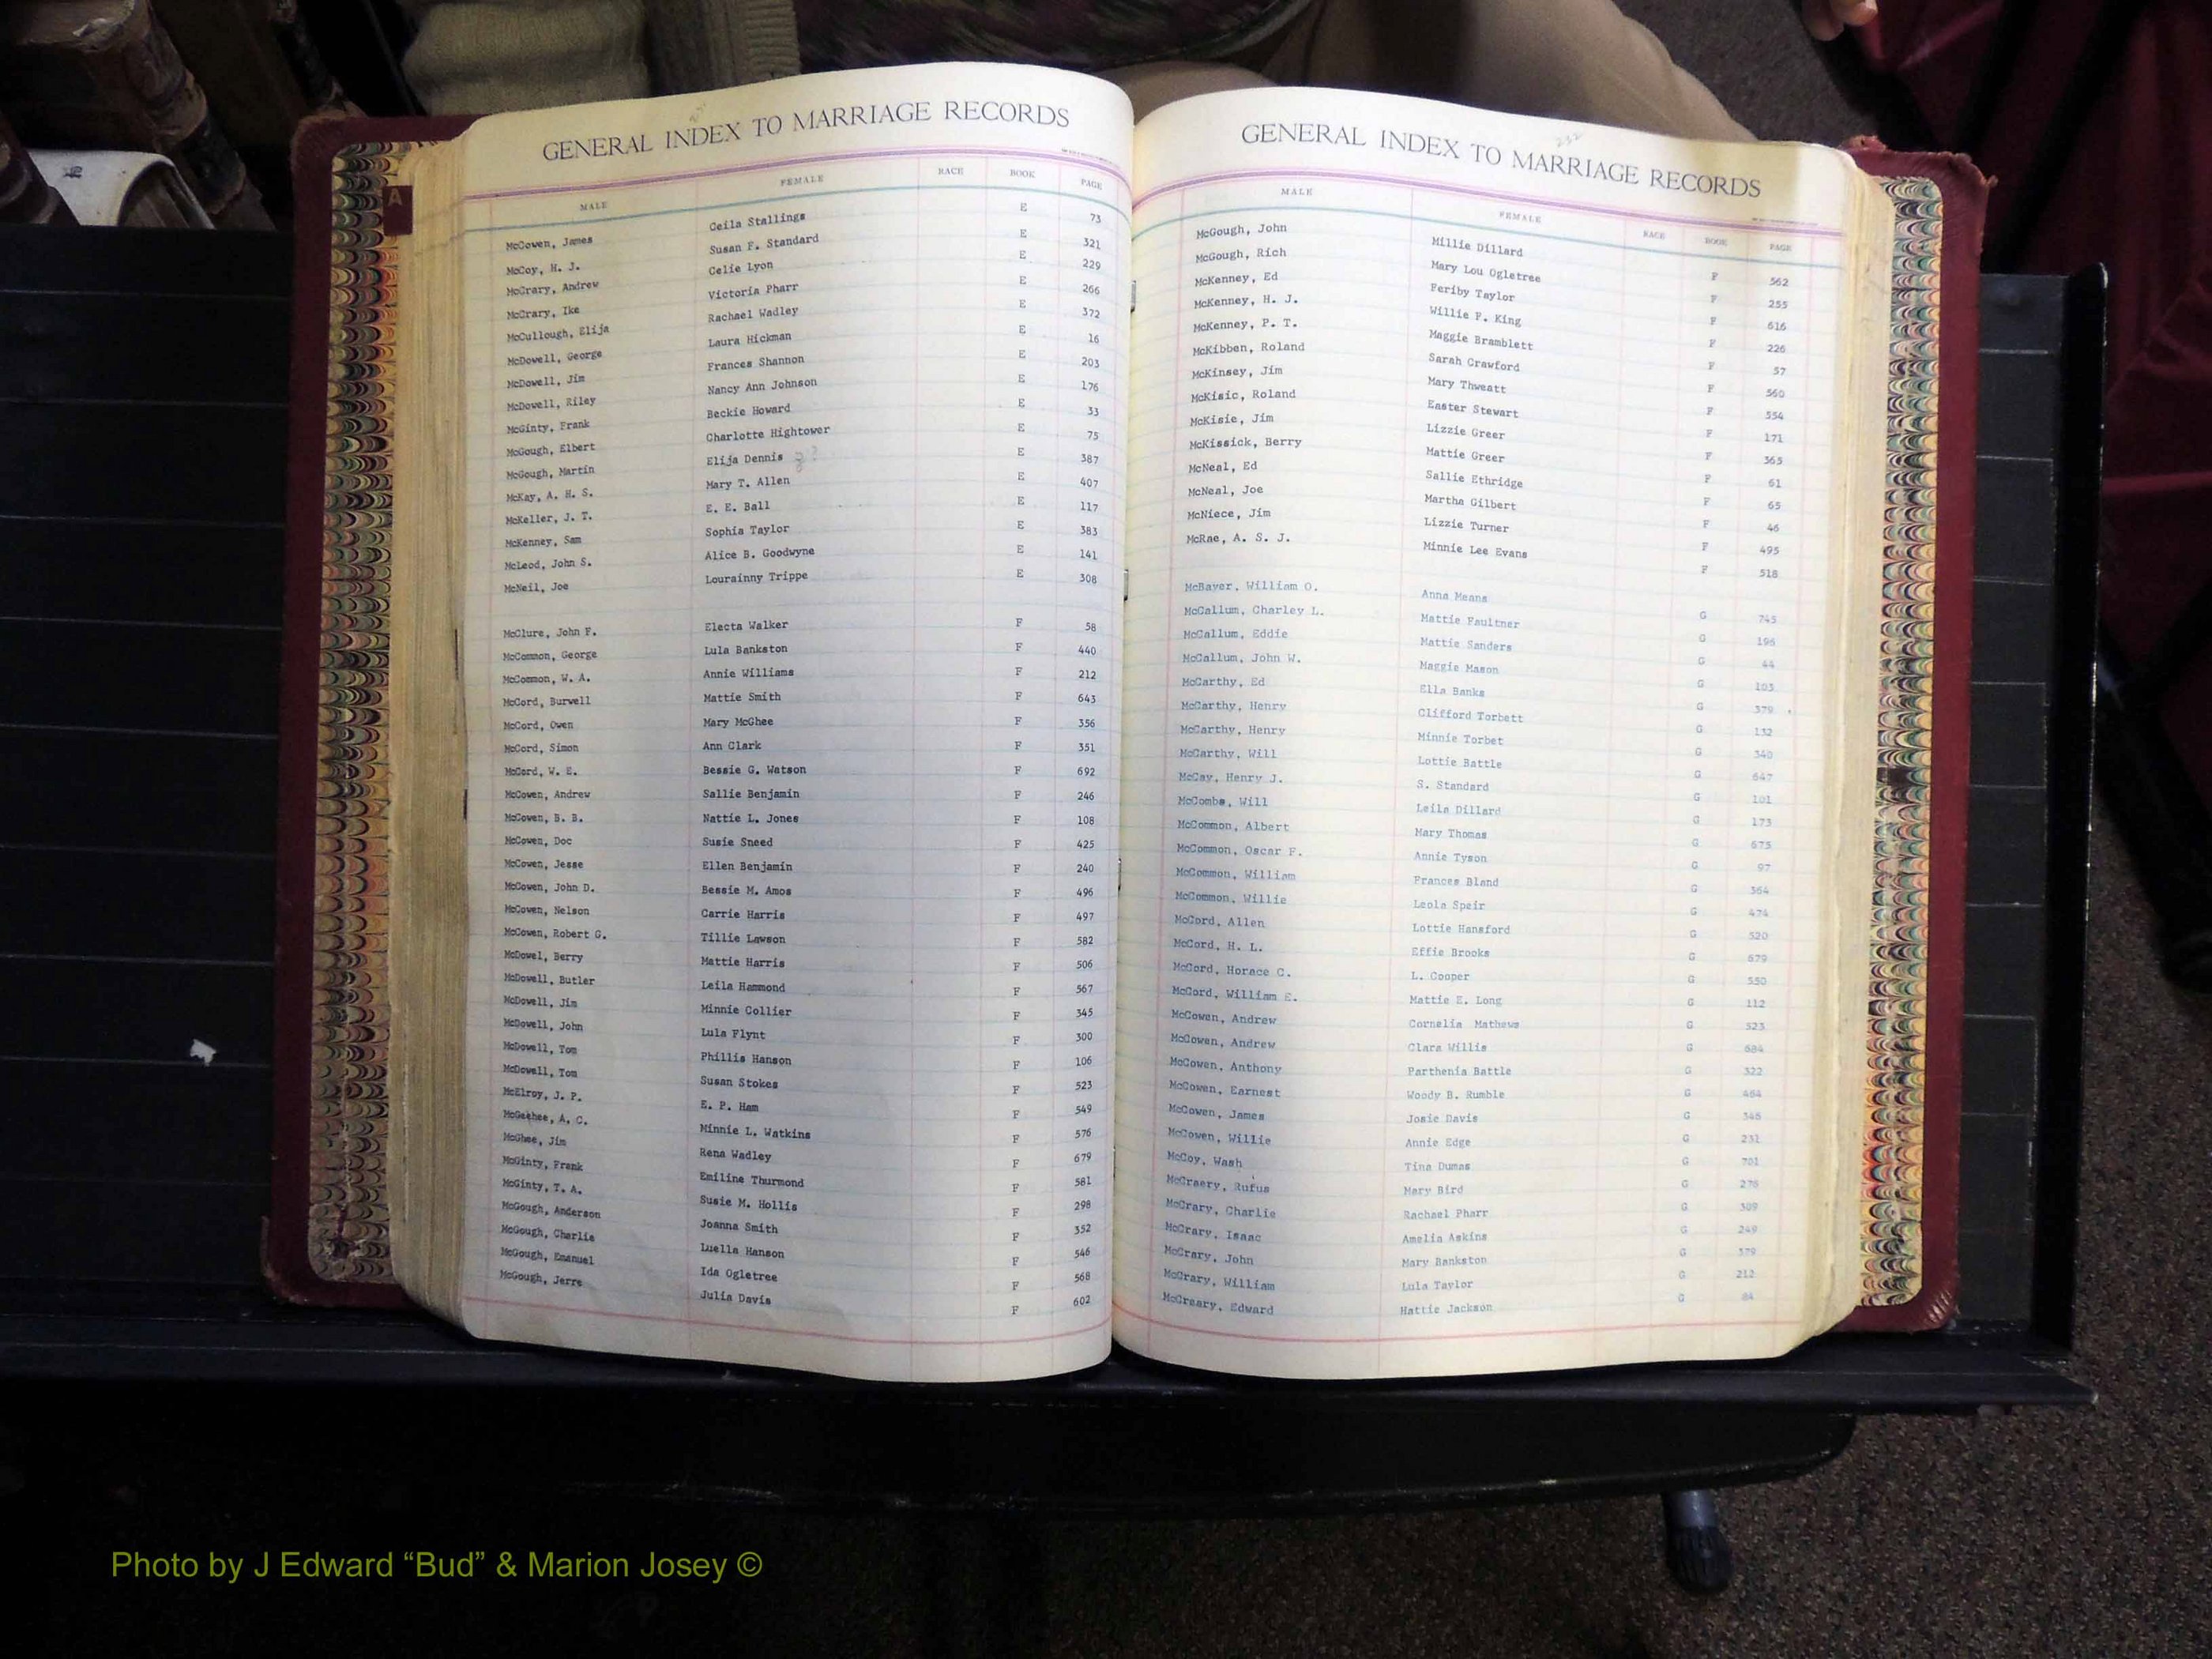 GENERAL INDEX TO MARRIAGE RECORDS
MALE FEMALE RACE BOOK PAGE
McCowen, James Ceila Stallings E 73
McCoy, H. J. Susan F. Standard E 321
McCrary, Andrew Celie Lyon E 229
McCrary, Ike Victoria Pharr E 266
McCullough, Elija Rachael Wadley E 372
McDowell, George Laura Hickman E 16
McDowell, Jim Frances Shannon E 203
McDowell, Riley Nancy Ann Johnson E 176
McGinty, Frank Beckie Howard E 33
McGough, Elbert Charlotte Hightower E 75
McGough, Martin Elija Dennis ?? E 387
McKay, A. H. S. Mary T. Allen E 407
McKeller, J. T. E. E. Ball E 117
McKenney, Sam Sophia Taylor E 383
McLeod, John S. Alice B. Goodwyne E 141
McNeil, Joe Lourainny Trippe E 308
McClure, John F. Electa Walker F 58
McCommon, George Lula Bankston F 440
McCommon, W. A. Annie Williams F 212
McCord, Burwell Mattie Smith F 643
McCord, Owen Mary McGhee F 356
McCord, Simon Ann Clark F 351
McCord, W. E. Bessie G. Watson F 692
McCowen, Andrew Sallie Benjamin F 246
McCowen, B. B. Nattie L. Jones F 108
McCowen, Doc Susie Sneed F 425
McCowen, Jesse Ellen Benjamin F 240
McCowen, John D. Bessie M. Amos F 496
McCowen, Nelson Carrie Harris F 497
McCowen, Robert G. Tillie Lawson F 582
McDowel, Berry Mattie Harris F 506
McDowell, Butler Leila Hammond F 567
McDowell, Jim Minnie Collier F 345
McDowell, John Lula Flynt F 300
McDowell, Tom Phillis Hanson F 106
McDowell, Tom Susan Stokes F 523
McElroy, J. P. E. P. Ham F 549
McGeehee, A. C. Minnie L. Watkins F 576
McGhee, Jim Rena Wadley F 679
McGinty, Frank Emiline Thurmond F 581
McGinty, T. A. Susie M. Hollis F 298
McGough, Anderson Joanna Smith F 352
McGough, Charlie Luella Hanson F 546
McGough, Emanuel Ida Ogletree F 568
McGough, Jerre Julia Davis F 602
232
GENERAL INDEX TO MARRIAGE RECORDS
MALE FEMALE RACE BOOK PAGE
McGough, John Millie Dillard F 562
McGough, Rich Mary Lou Ogletree F 255
McKenney, Ed Feriby Taylor F 616
McKenney, H. J. Willie P. King F 226
McKenney, P. T. Maggie Bramblett F 57
McKibben, Roland Sarah Crawford F 560
McKinsey, Jim Mary Thweatt F 554
McKisic, Roland Easter Stewart F 171
McKisie, Jim Lizzie Greer F 365
McKissick, Berry Mattie Greer F 61
McNeal, Ed Sallie Ethridge F 65
McNeal, Joe Martha Gilbert F 46
McNiece, Jim Lizzie Turner F 495
McRae, A. S. J. Minnie Lee Evans F 518
McBayer, William O. Anna Means G 745
McCallum, Charley L. Mattie Faultner G 196
McCallum, Eddie Mattie Sanders G 44
McCallum, John W. Maggie Mason G 103
McCarthy, Ed Ella Banks G 379
McCarthy, Henry Clifford Torbett G 132
McCarthy, Henry Minnie Torbet G 340
McCarthy, Will Lottie Battle G 647
McCay, Henry J. S. Standard G 101
McCombs, Will Leila Dillard G 173
McCommon, Albert Mary Thomas G 675
McCommon, Oscar F. Annie Tyson G 97
McCommon, William Frances Bland G 364
McCommon, Willie Leola Speir G 474
McCord, Allen Lottie Hansford G 520
McCord, H. L. Effie Brooks G 679
McCord, Horace C. L. Cooper G 550
McCord, William E. Mattie E. Long G 112
McCowen, Andrew Cornelia Mathews G 523
McCowen, Andrew Clara Willis G 684
McCowen, Anthony Parthenia Battle G 322
McCowen, Earnest Woody B. Rumble G 464
McCowen, James Josie Davis G 346
McCowen, Willie Annie Edge G 231
McCoy, Wash Tina Dumas G 701
McCraery, Rufus Mary Bird G 276
McCrary, Charlie Rachael Pharr G 309
McCrary, Isaac Amelia Askins G 249
McCrary, John Mary Bankston G 379
McCrary, William Lula Taylor G 212
McCreary, Edward Hattie Jackson G 84
A
Photo by J Edward “Bud” & Marion Josey ©